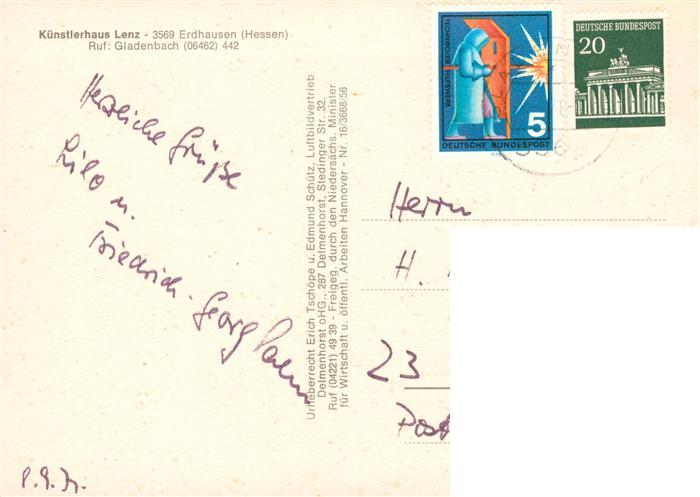 Künstlerhaus Lenz - 3569 Erdhausen (Hessen)
Ruf: Gladenbach (06462) 442
Herzliche Grüße
Lilo u.
Friedrich-Georg
8.9.71.
Urheberrecht Erich Tschöpe u. Edmund Schütz, Luftbildvertrieb
Delmenhorst oHG., 287 Delmenhorst, Stedinger Str. 32,
Ruf (04221) 49 39 - Freigeg. durch den Niedersächs. Minister
für Wirtschaft u. öffentl. Arbeiten Hannover - Nr. 16/3668/56
TECHNISCHES HILFSWERK
5
DEUTSCHE BUNDESPOST
DEUTSCHE BUNDESPOST
20
Herrn
H.
23
Post